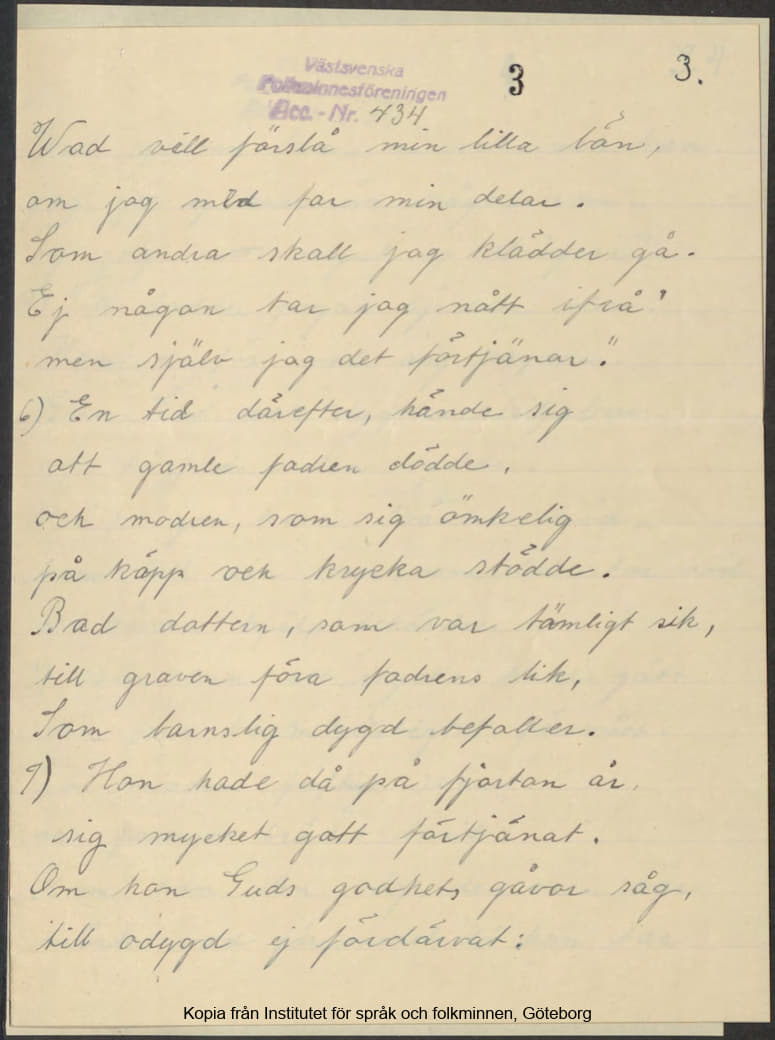 Västsvenska
Folkminnesföreningen
Acc. - Nr. 434
3
3.
Wad vill förslå min lilla lön,
om jag mild far min delar.
Som andra skall jag klädder gå.
Ej någon tar jag nått ifrå'
men själv jag det förtjänar."
6) En tid därefter, hände sig
att gamle fadren dödde,
och modren, som sig ömkelig
på käpp och krycka stödde.
Bad dottern, som var tämligt rik,
till graven föra fadrens lik,
Som barnslig dygd befaller.
7) Hon hade då på fjorton år,
sig mycket gott förtjänat.
Om hon Guds godhets gåvor såg,
till odygd ej fördärvat:
Kopia från Institutet för språk och folkminnen, Göteborg